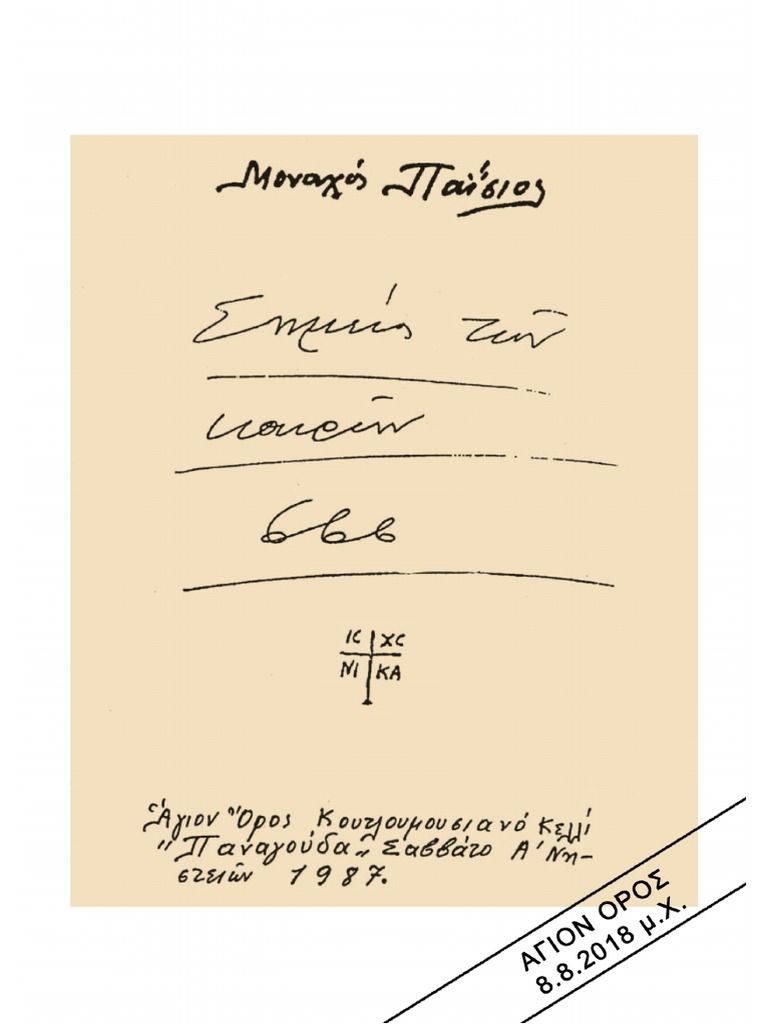 Μοναχός Παΐσιος
Σημεῖα τῶν
καιρῶν
666
ΙC ΧC
ΝΙ ΚΑ
Ἅγιον Ὄρος Κουτλουμουσιανό Κελλί
"Παναγούδα„ Σάββατο Α' Νη-
στειῶν 1987.
ΑΓΙΟΝ ΟΡΟΣ
8.8.2018 μ.Χ.